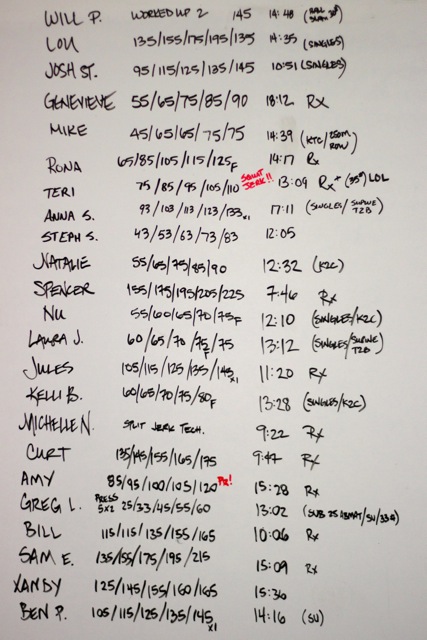 WILL P. WORKED UP 2 145 14:48 (BALL SLAM 30#)
LOU 135/155/175/195/135 14:35 (SINGLES)
JOSH ST. 95/115/125/135/145 10:51 (SINGLES)
GENEVIEVE 55/65/75/85/90 18:12 RX
MIKE 45/65/65/75/75 14:39 (KTC/250M ROW)
RONA 65/85/105/115/125F 14:17 RX
TERI 75/85/95/105/110 SQUAT JERK!! 13:09 RX+ (35#) LOL
ANNA S. 93/103/113/123/133X1 17:11 (SINGLES/SUPINE T2B)
STEPH S. 43/53/63/73/83 12:05
NATALIE 55/65/75/85/90 12:32 (K2C)
SPENCER 155/175/195/205/225 7:46 RX
NU 55/60/65/70/75F 12:10 (SINGLES/K2C)
LAURA J. 60/65/70/75F/75 13:12 (SINGLES/SUPINE T2B)
JULES 105/115/125/135/145X1 11:20 RX
KELLI B. 60/65/70/75/80F 13:28 (SINGLES/K2C)
MICHELLE N. SPLIT JERK TECH. 9:22 RX
CURT 135/145/155/165/175 9:47 RX
AMY 85/95/100/105/120 PR! 15:28 RX
GREG L. PRESS 5X2 25/33/45/55/60 13:02 (SUB 25 ABMAT/SU/33#)
BILL 115/115/135/155/165 10:06 RX
SAM E. 135/155/175/195/215 15:09 RX
XANDY 125/145/155/160/165 15:36
BEN P. 105/115/125/135/145X1 14:16 (SU)